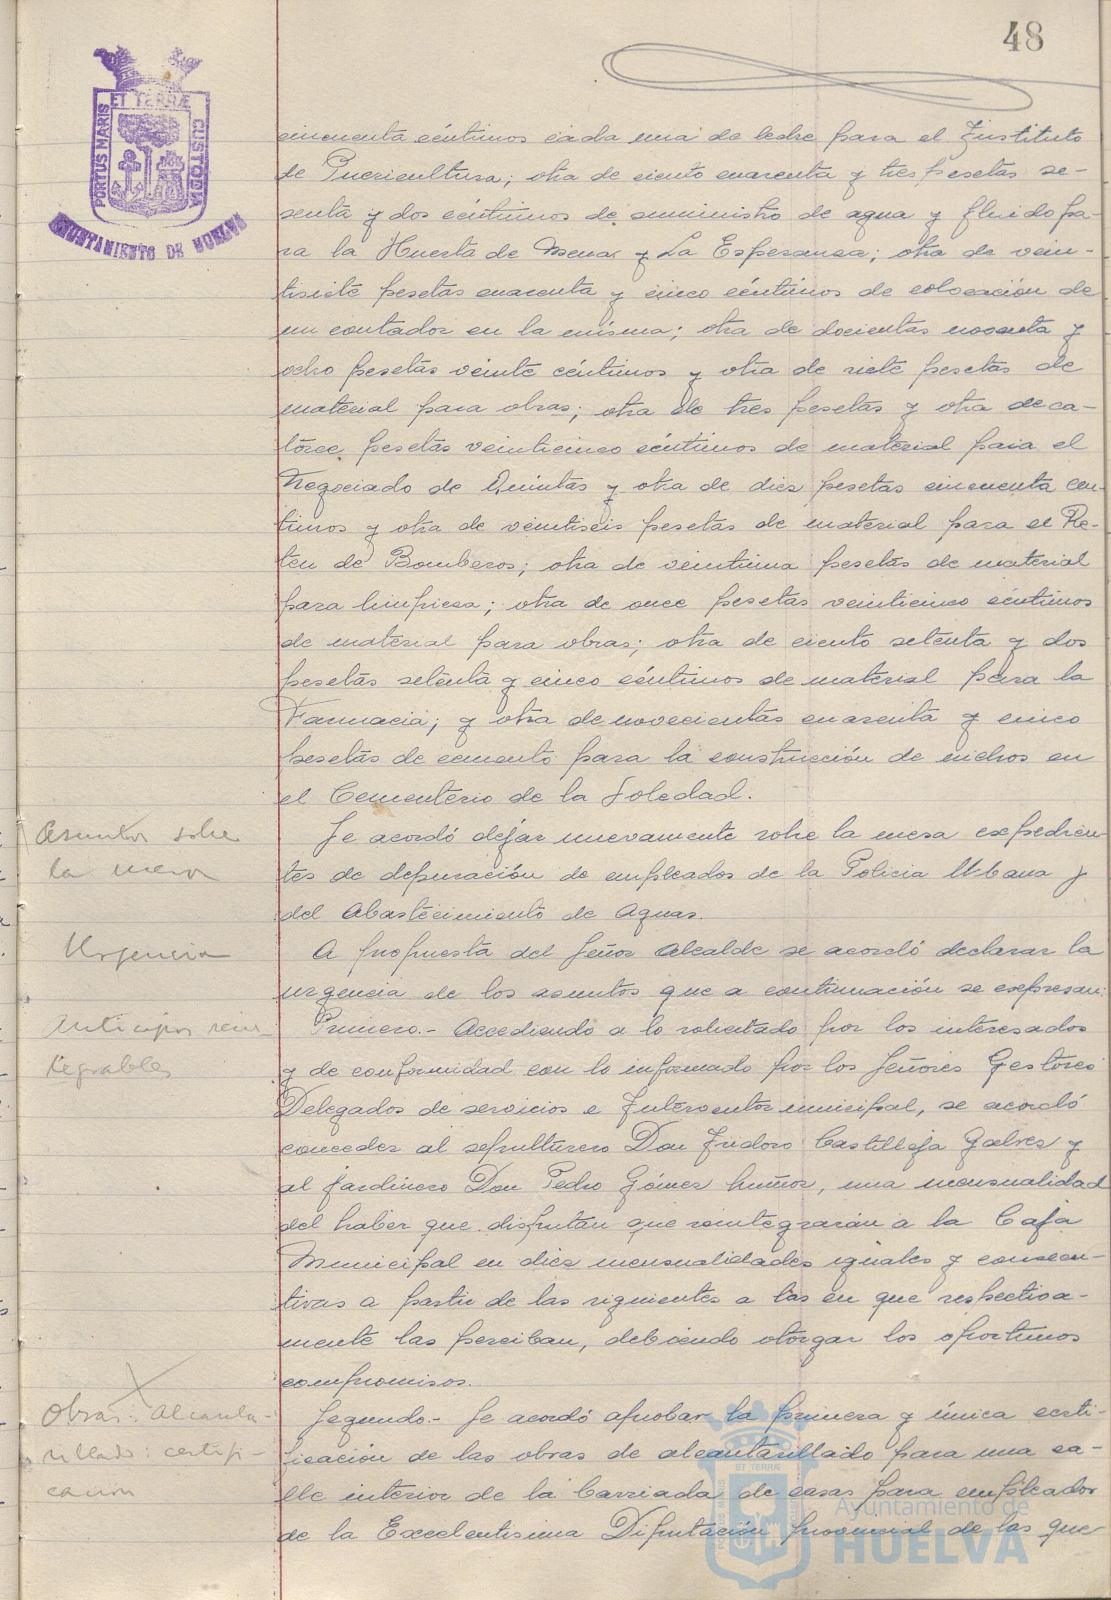 48
PORTUS MARIS ET TERRÆ CUSTODIA
AYUNTAMIENTO DE HUELVA
cincuenta céntimos cada una de leche para el Instituto
de Puericultura; otra de ciento cuarenta y tres pesetas se-
senta y dos céntimos de suministro de agua y fluido pa-
ra la Huerta de Mena y La Esperanza; otra de vein-
tisiete pesetas cuarenta y cinco céntimos de colocación de
un contador en la misma; otra de docientas noventa y
ocho pesetas veinte céntimos y otra de siete pesetas de
material para obras; otra de tres pesetas y otra de ca-
torce pesetas veinticinco céntimos de material para el
Negociado de Quintas y otra de diez pesetas cincuenta cen-
timos y otra de veintiseis pesetas de material para el Re-
ten de Bomberos; otra de veintiuna pesetas de material
para limpieza; otra de once pesetas veinticinco céntimos
de material para obras; otra de ciento setenta y dos
pesetas setenta y cinco céntimos de material para la
Farmacia; y otra de novecientas cuarenta y cinco
pesetas de cemento para la construcción de nichos en
el Cementerio de la Soledad.
Asuntos sobre
la mesa
Se acordó dejar nuevamente sobre la mesa expedien-
tes de depuración de empleados de la Policia Urbana y
del Abastecimiento de Aguas.
Urgencia
A propuesta del Señor Alcalde se acordó declarar la
urgencia de los asuntos que a continuación se expresan:
Anticipos rein-
tegrables
Primero.- Accediendo a lo solicitado por los interesados
y de conformidad con lo informado por los Señores Gestores
Delegados de servicios e Interventor municipal, se acordó
conceder al sepulturero Don Isidoro Castilleja Galvez y
al jardinero Don Pedro Gómez Muñoz, una mensualidad
del haber que disfrutan que reintegrarán a la Caja
Municipal en diez mensualidades iguales y consecu-
tivas a partir de las siguientes a las en que respectiva-
mente las perciban, debiendo otorgar los oportunos
compromisos.
Obras: Alcanta-
rillado: certifi-
cación
Segundo.- Se acordó aprobar la primera y única certi-
ficación de las obras de alcantarillado para una ca-
lle interior de la barriada de casas para empleados
de la Excelentisima Diputación provincial de las que
Ayuntamiento de
HUELVA